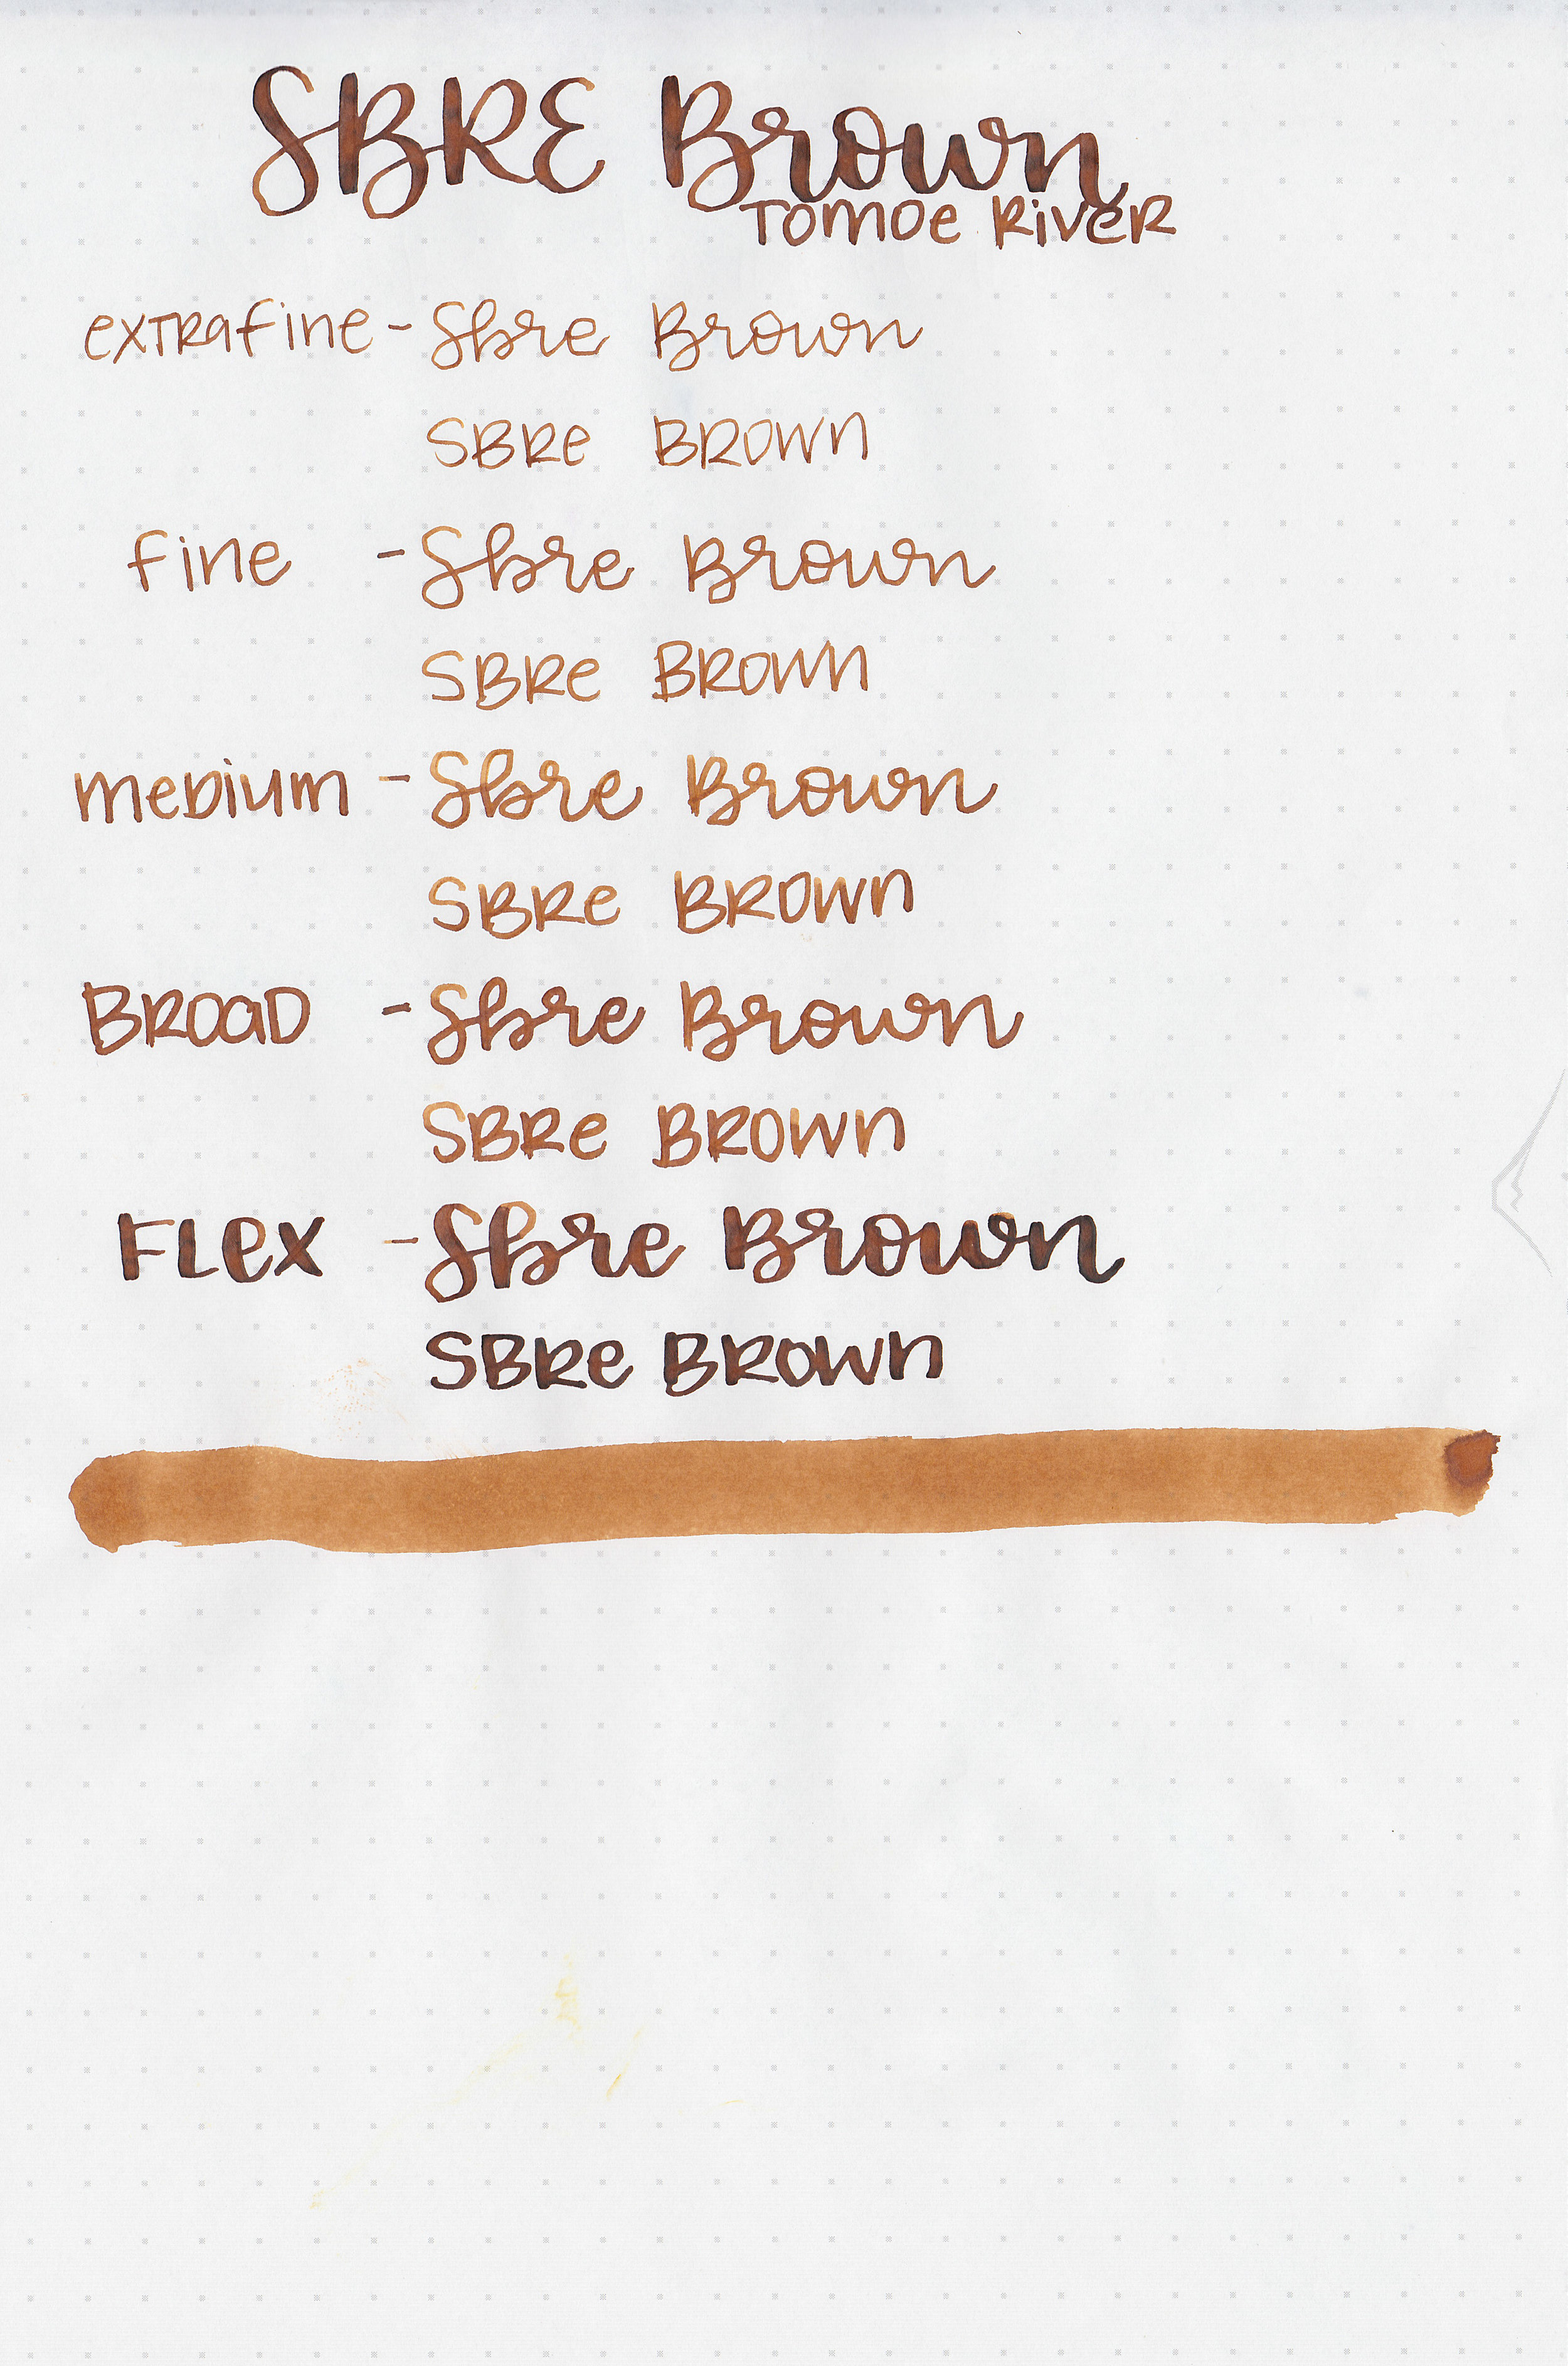 SBRE Brown
Tomoe River
extrafine - Sbre Brown
SBRe BROWN
fine - Sbre Brown
SBRe BROWN
meDium - Sbre Brown
SBRe BROWN
BROaD - Sbre Brown
SBRe BROWN
FLex - Sbre Brown
SBRe BROWN